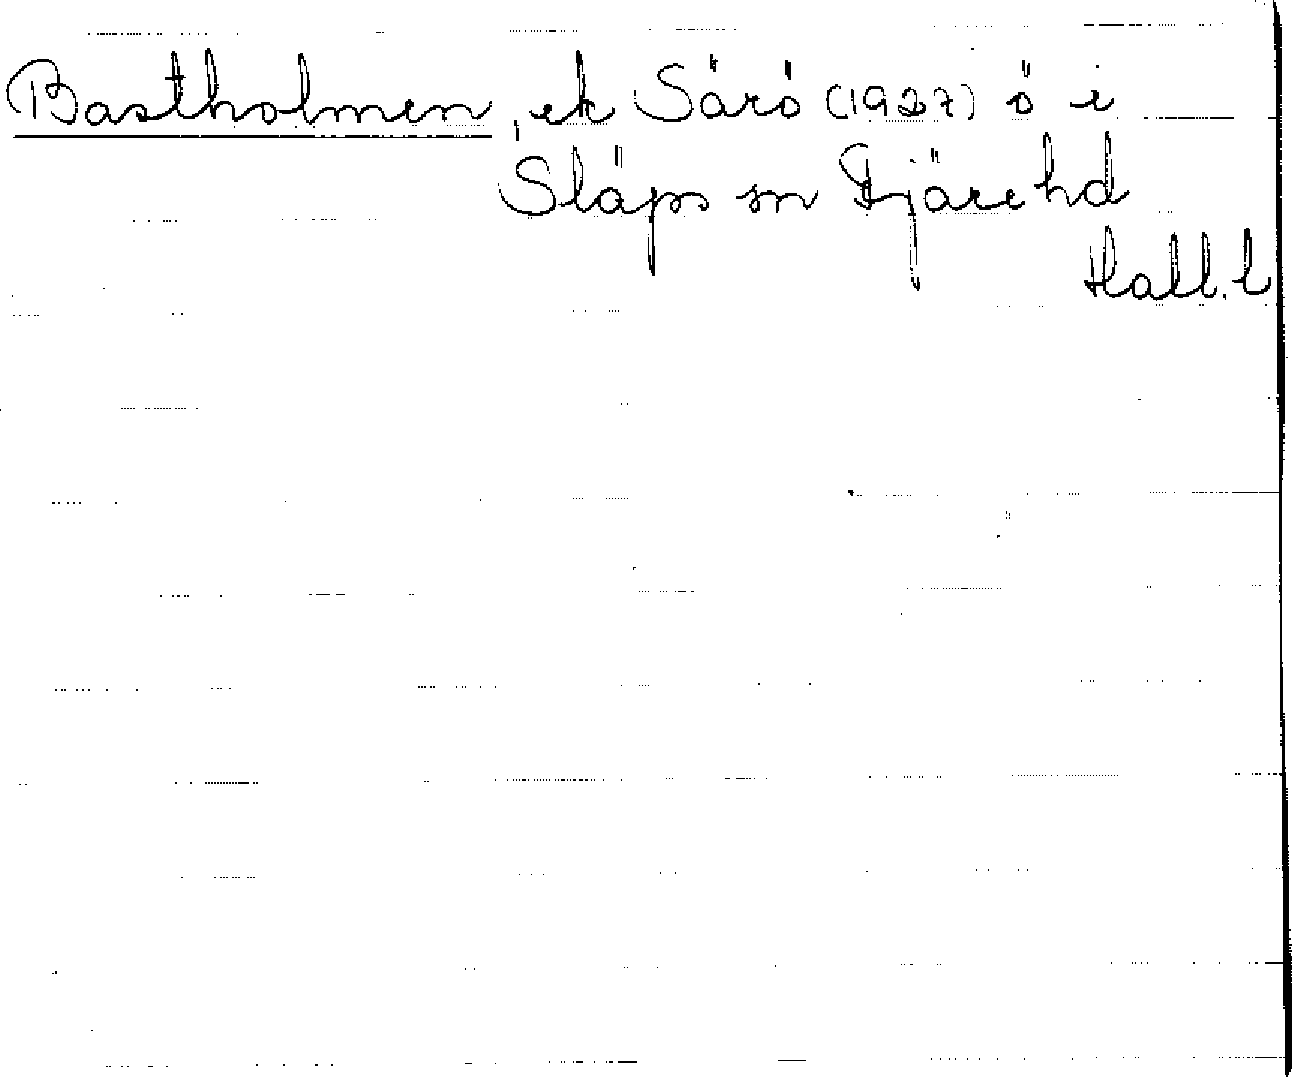 Bastholmen, ek Särö (1927) ö i
Släps sn Fjäre hd
Hall. l